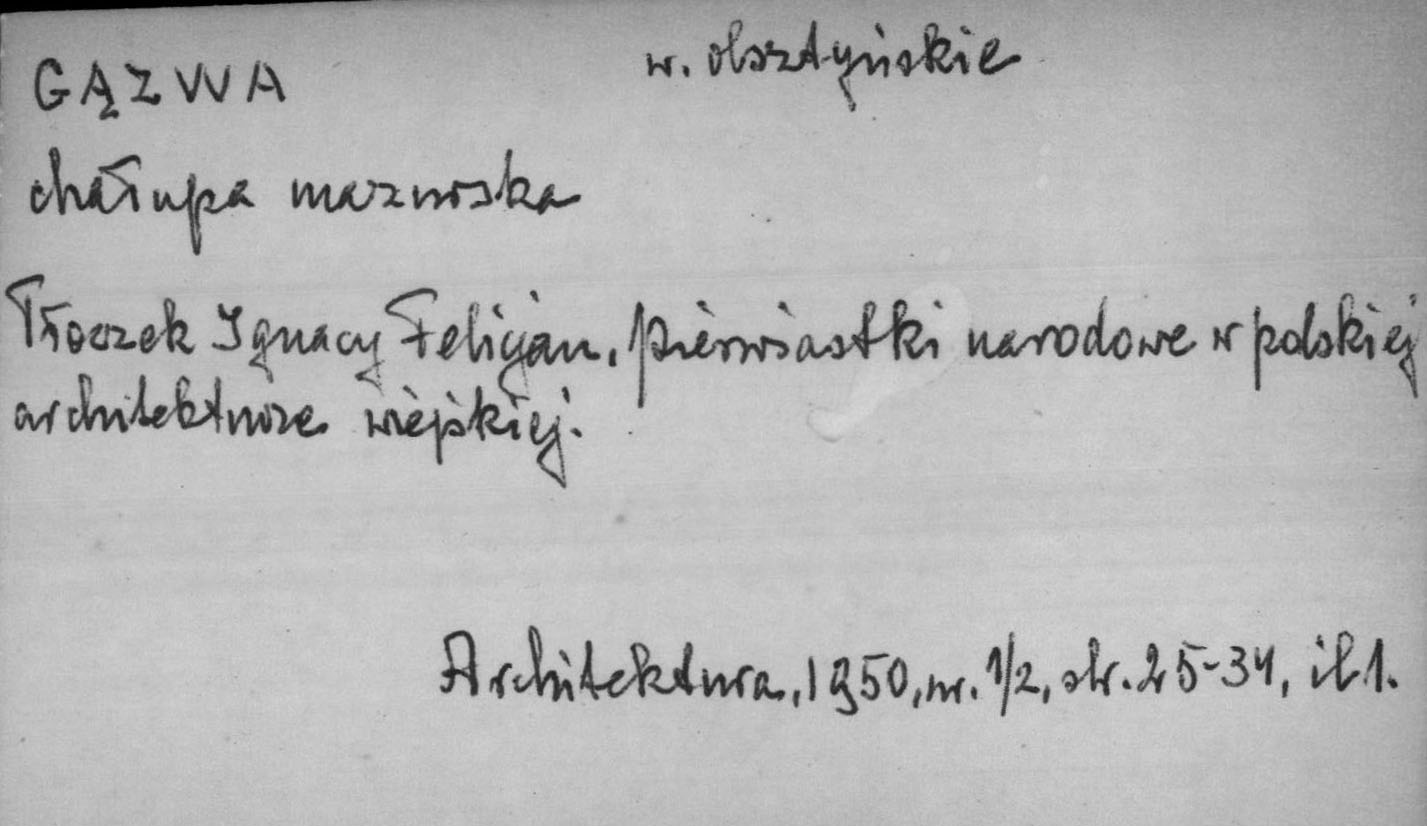 GĄZWA
w. olsztyńskie
chałupa mazurska
Tłoczek Ignacy Felicjan, pierwiastki narodowe w polskiej
architekturze wiejskiej.
Architektura, 1950, nr. 1/2, str. 25-34, il 1.